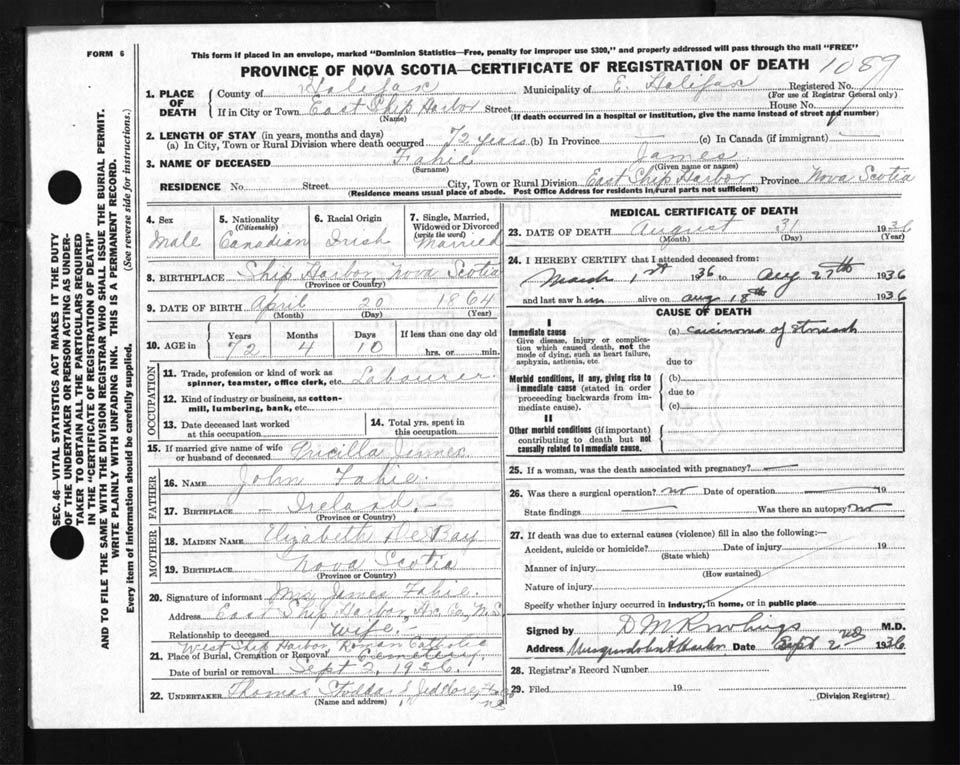 FORM 6
This form if placed in an envelope, marked "Dominion Statistics—Free, penalty for improper use $300," and properly addressed will pass through the mail "FREE"
PROVINCE OF NOVA SCOTIA—CERTIFICATE OF REGISTRATION OF DEATH 1089
1. PLACE OF DEATH
County of Halifax Municipality of E. Halifax Registered No.
(For use of Registrar General only)
If in City or Town East Ship Harbor Street House No.
(Name) (If death occurred in a hospital or institution, give the name instead of street and number)
2. LENGTH OF STAY (in years, months and days)
(a) In City, Town or Rural Division where death occurred 72 years (b) In Province (c) In Canada (if immigrant)
3. NAME OF DECEASED Fahie James
(Surname) (Given name or names)
RESIDENCE No. Street City, Town or Rural Division East Ship Harbor Province Nova Scotia
(Residence means usual place of abode. Post Office Address for residents in rural parts not sufficient)
4. Sex Male
5. Nationality (Citizenship) Canadian
6. Racial Origin Irish
7. Single, Married, Widowed or Divorced (write the word) Married
8. BIRTHPLACE Ship Harbor, Nova Scotia
(Province or Country)
9. DATE OF BIRTH April 20 1864
(Month) (Day) (Year)
10. AGE in Years Months Days If less than one day old
72 4 10 hrs. or min.
OCCUPATION
11. Trade, profession or kind of work as spinner, teamster, office clerk, etc. Labourer
12. Kind of industry or business, as cotton-mill, lumbering, bank, etc.
13. Date deceased last worked at this occupation
14. Total yrs. spent in this occupation
15. If married give name of wife or husband of deceased Pricilla
FATHER
16. NAME John Fahie
17. BIRTHPLACE Ireland
(Province or Country)
MOTHER
18. MAIDEN NAME Elizabeth De Bay
19. BIRTHPLACE Nova Scotia
(Province or Country)
20. Signature of informant Mrs James Fahie
Address East Ship Harbor, Hx. Co., N.S.
Relationship to deceased Wife
West Ship Harbor, Roman Catholic
21. Place of Burial, Cremation or Removal Cemetery
Date of burial or removal Sept 2, 1936
22. UNDERTAKER Thomas
(Name and address)
MEDICAL CERTIFICATE OF DEATH
23. DATE OF DEATH August 31 1936
(Month) (Day) (Year)
24. I HEREBY CERTIFY that I attended deceased from:
March 1st 1936 to Aug 27th 1936
and last saw him alive on Aug 18th 1936
CAUSE OF DEATH
I
Immediate cause
Give disease, injury or complication which caused death, not the mode of dying, such as heart failure, asphyxia, asthenia, etc.
(a) Carcinoma of Stomach
due to
Morbid conditions, if any, giving rise to immediate cause (stated in order proceeding backwards from immediate cause).
(b)
due to
(c)
II
Other morbid conditions (if important) contributing to death but not causally related to immediate cause.
25. If a woman, was the death associated with pregnancy?
26. Was there a surgical operation? no Date of operation 19
State findings Was there an autopsy? no
27. If death was due to external causes (violence) fill in also the following:—
Accident, suicide or homicide? Date of injury 19
(State which)
Manner of injury
(How sustained)
Nature of injury
Specify whether injury occurred in industry, in home, or in public place
Signed by D M Rowlings M.D.
Address Musquodoboit Harbor Date Sept 2nd 1936
28. Registrar's Record Number
29. Filed 19
(Division Registrar)
SEC. 46—VITAL STATISTICS ACT MAKES IT THE DUTY
OF THE UNDERTAKER OR PERSON ACTING AS UNDER-
TAKER TO OBTAIN ALL THE PARTICULARS REQUIRED
IN THE "CERTIFICATE OF REGISTRATION OF DEATH"
AND TO FILE THE SAME WITH THE DIVISION REGISTRAR WHO SHALL ISSUE THE BURIAL PERMIT.
WRITE PLAINLY WITH UNFADING INK. THIS IS A PERMANENT RECORD.
Every item of information should be carefully supplied. (See reverse side for instructions.)